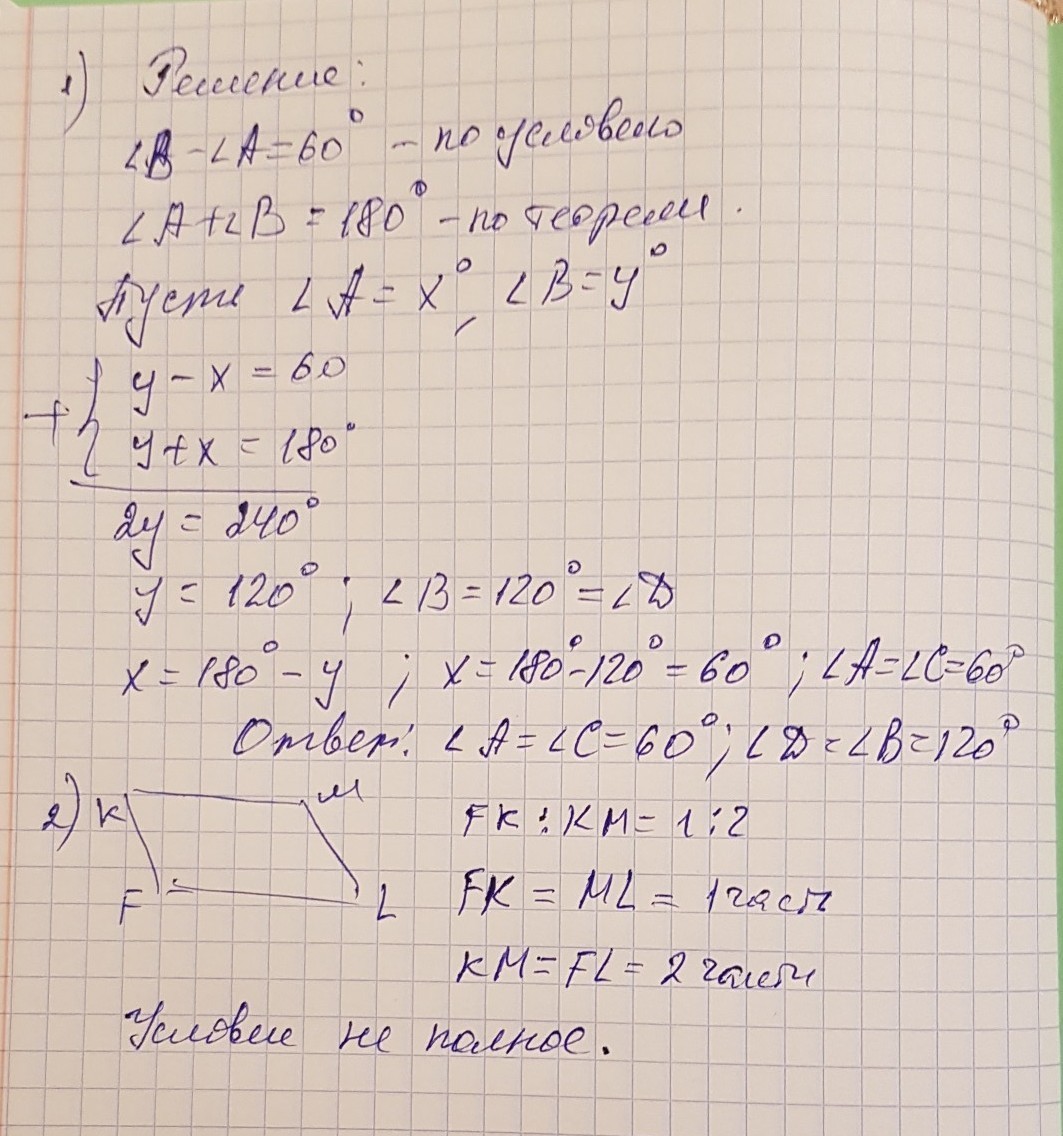 1) Решение:
∠B - ∠A = 60° - по условию
∠A + ∠B = 180° - по теореме.
Пусть ∠A = x°, ∠B = y°
+ { y - x = 60
y + x = 180°
2y = 240°
y = 120° ; ∠B = 120° = ∠D
x = 180° - y ; x = 180° - 120° = 60° ; ∠A = ∠C = 60°
Ответ: ∠A = ∠C = 60° ; ∠D = ∠B = 120°
2) K M FK : KM = 1 : 2
F L FK = ML = 1 часть
KM = FL = 2 части
Условие не полное.